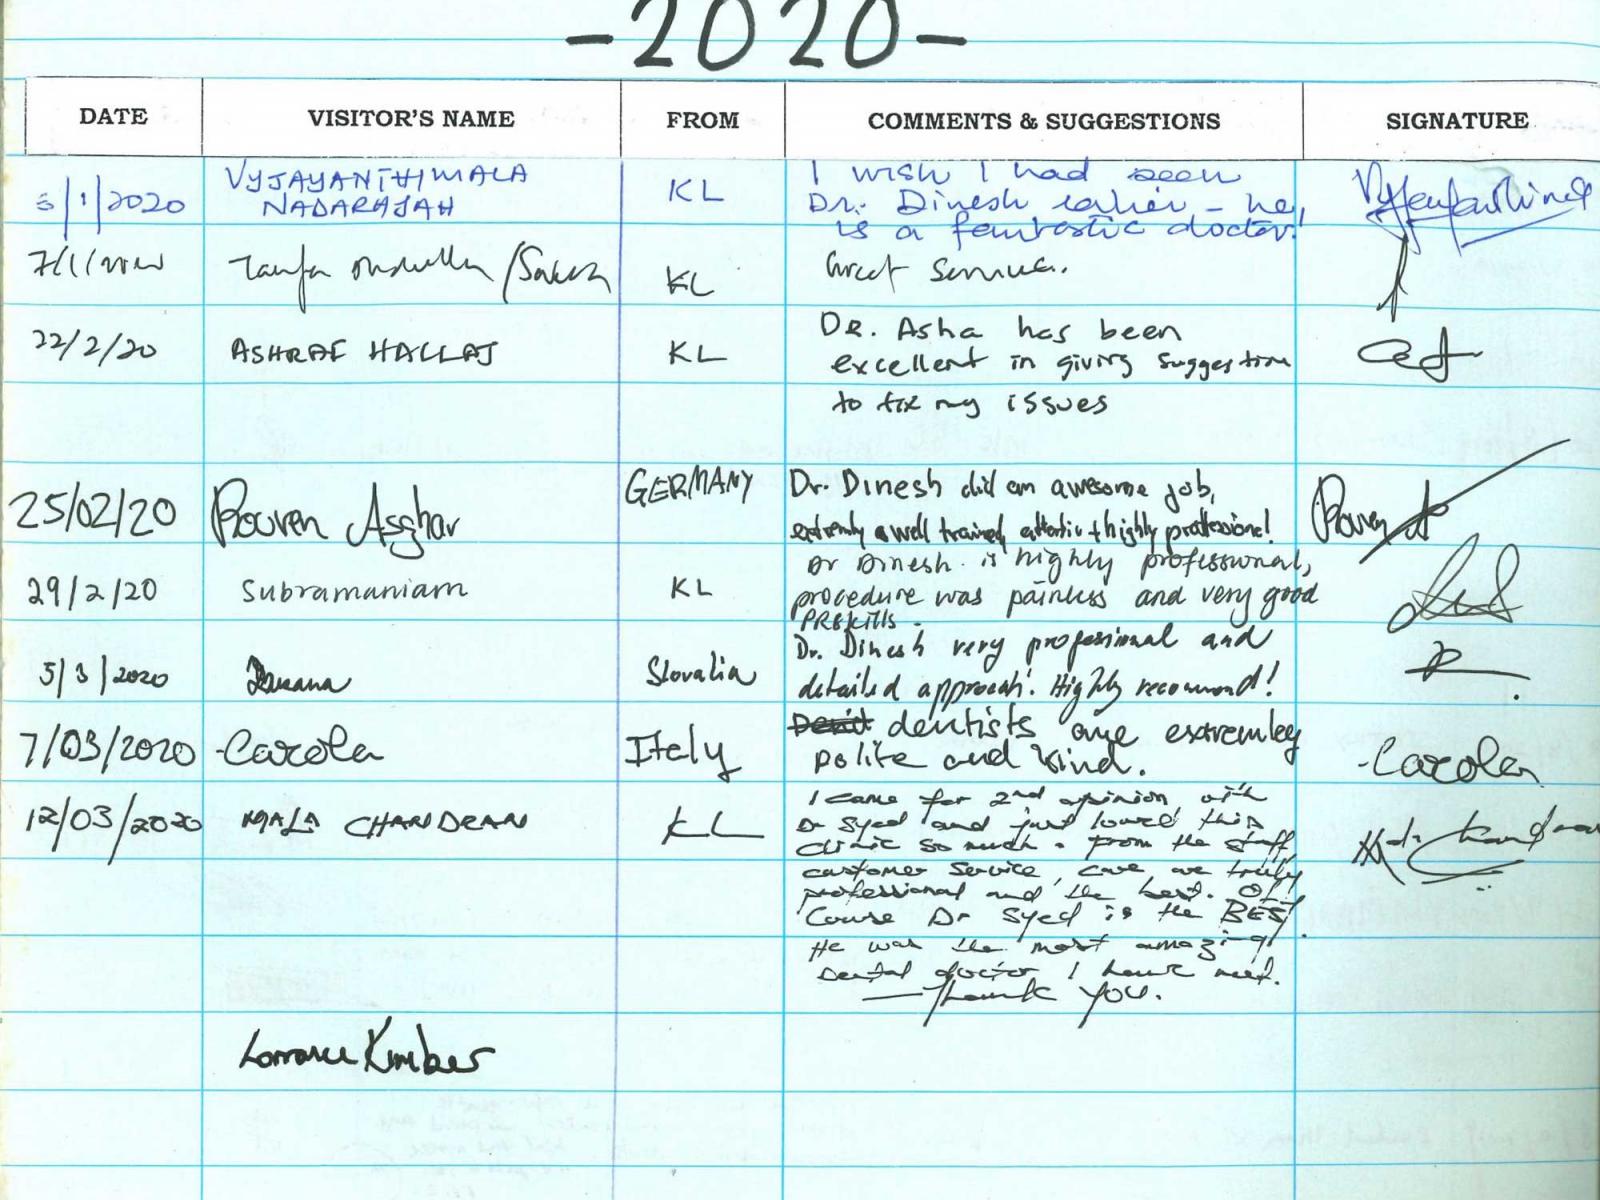 -2020-
DATE VISITOR'S NAME FROM COMMENTS & SUGGESTIONS SIGNATURE
/1/2020 VYJAYANTHIMALA NADARAJAH KL I wish I had seen
Dr. Dinesh earlier - he
is a fantastic doctor!
7/1/ KL Great Service.
22/2/20 ASHRAF HALLAJ KL DR. Asha has been
excellent in giving suggestion
to fix my issues
25/02/20 Rouven Asghar GERMANY Dr. Dinesh did an awesome job,
extremly well trained, attentiv + highly proffessional! Rouven A
29/2/20 Subramaniam KL Dr Dinesh is highly professional,
procedure was painless and very good
PR skills.
5/3/2020 Slovakia Dr. Dinesh very professional and
detailed approach! Highly recommend!
7/03/2020 Carola Italy dentists are extremley
polite and kind. Carola
12/03/2020 MALA CHANDRAN KL I came for 2nd opinion with
Dr Syed and just loved this
clinic so much. From the staff
customer service, care are truly
professional and the best. Of
Course Dr Syed is the BEST.
He was the most amazing
Dental doctor I have met.
— Thank You.
Lorraine Kimber